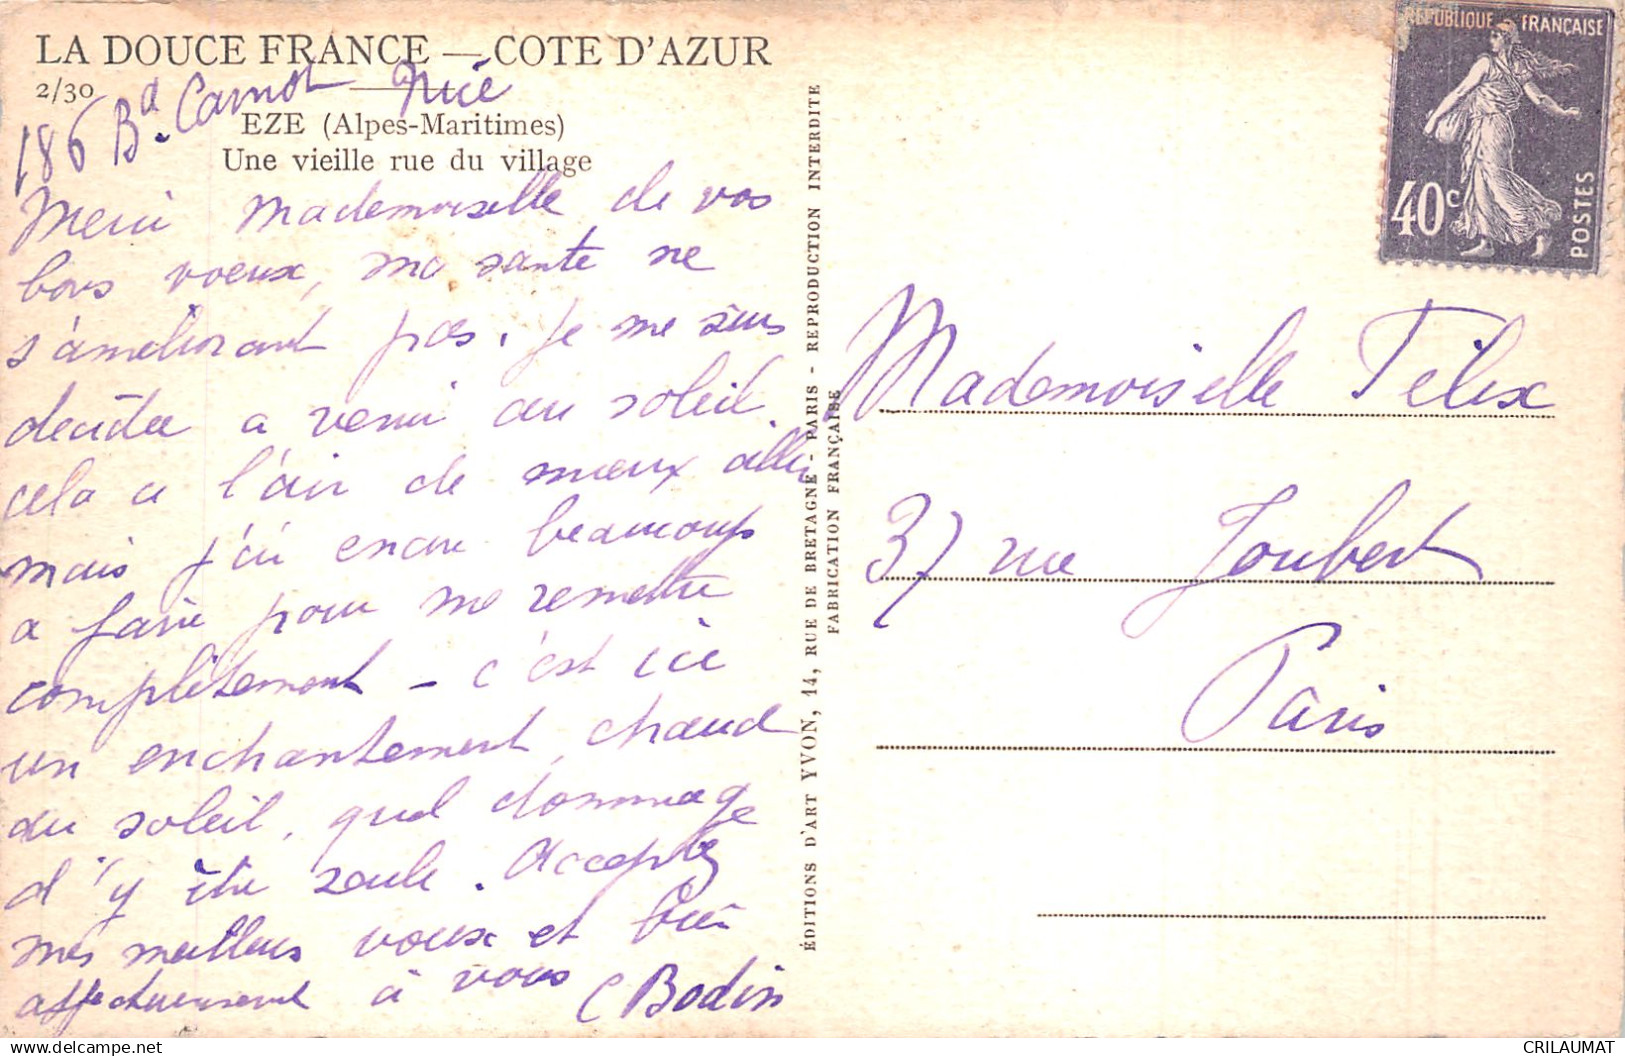 LA DOUCE FRANCE — COTE D'AZUR
2/30
186 Bd. Carnot Nice
EZE (Alpes-Maritimes)
Une vieille rue du village
Merci Mademoiselle de vos
bons voeux, ma sante ne
s'améliorant pas, je me suis
decidée a venir au soleil.
cela a l'air de mieux aller
mais j'ai encore beaucoup
a faire pour me remettre
complètement - c'est ici
un enchantement, chaud
du soleil, quel dommage
d'y être seule. Acceptez
mes meilleurs voeux et bien
affectueusement à vous
C Bodin
ÉDITIONS D'ART YVON, 14, RUE DE BRETAGNE - PARIS - REPRODUCTION INTERDITE
FABRICATION FRANÇAISE
REPUBLIQUE FRANÇAISE
40c
POSTES
Mademoiselle Felix
37 rue Joubert
Paris
CRILAUMAT